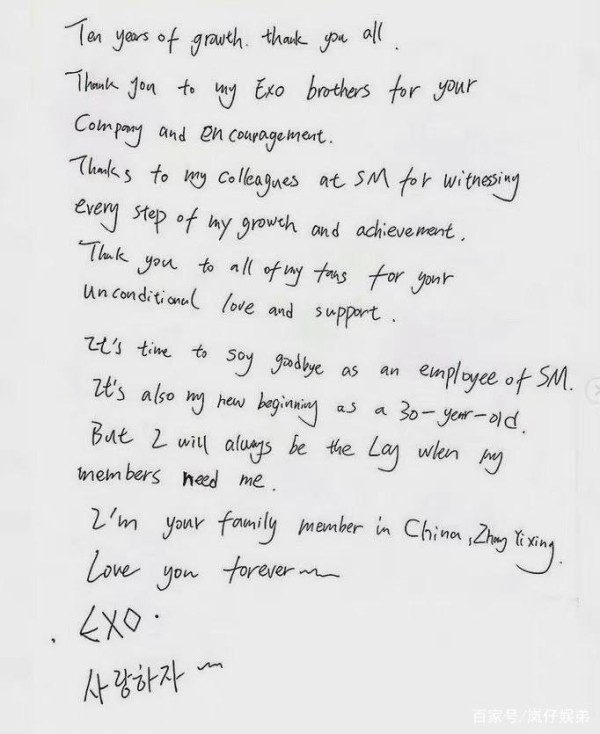 Ten years of growth. thank you all.
Thank you to my Exo brothers for your
Company and encouragement.
Thanks to my colleagues at SM for witnessing
every step of my growth and achievement.
Thank you to all of my fans for your
unconditional love and support.
It's time to say goodbye as an employee of SM.
It's also my new beginning as a 30-year-old.
But I will always be the Lay when my
members need me.
I'm your family member in China, Zhang Yixing.
Love you forever~
EXO.
사랑하자~
百家号/岚仔娱弟